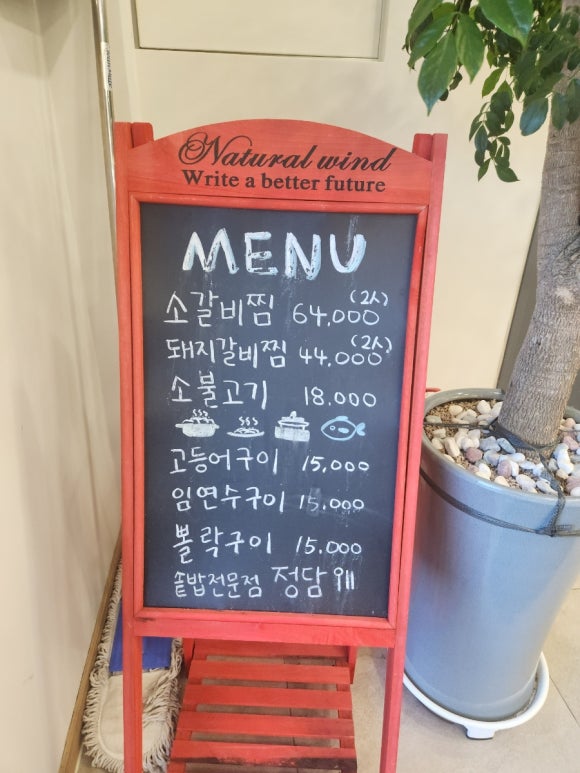 Natural wind
Write a better future
MENU
소갈비찜 64,000 (2人)
돼지갈비찜 44,000 (2人)
소불고기 18.000
고등어구이 15,000
임연수구이 15,000
뽈락구이 15.000
솥밥전문점 정담